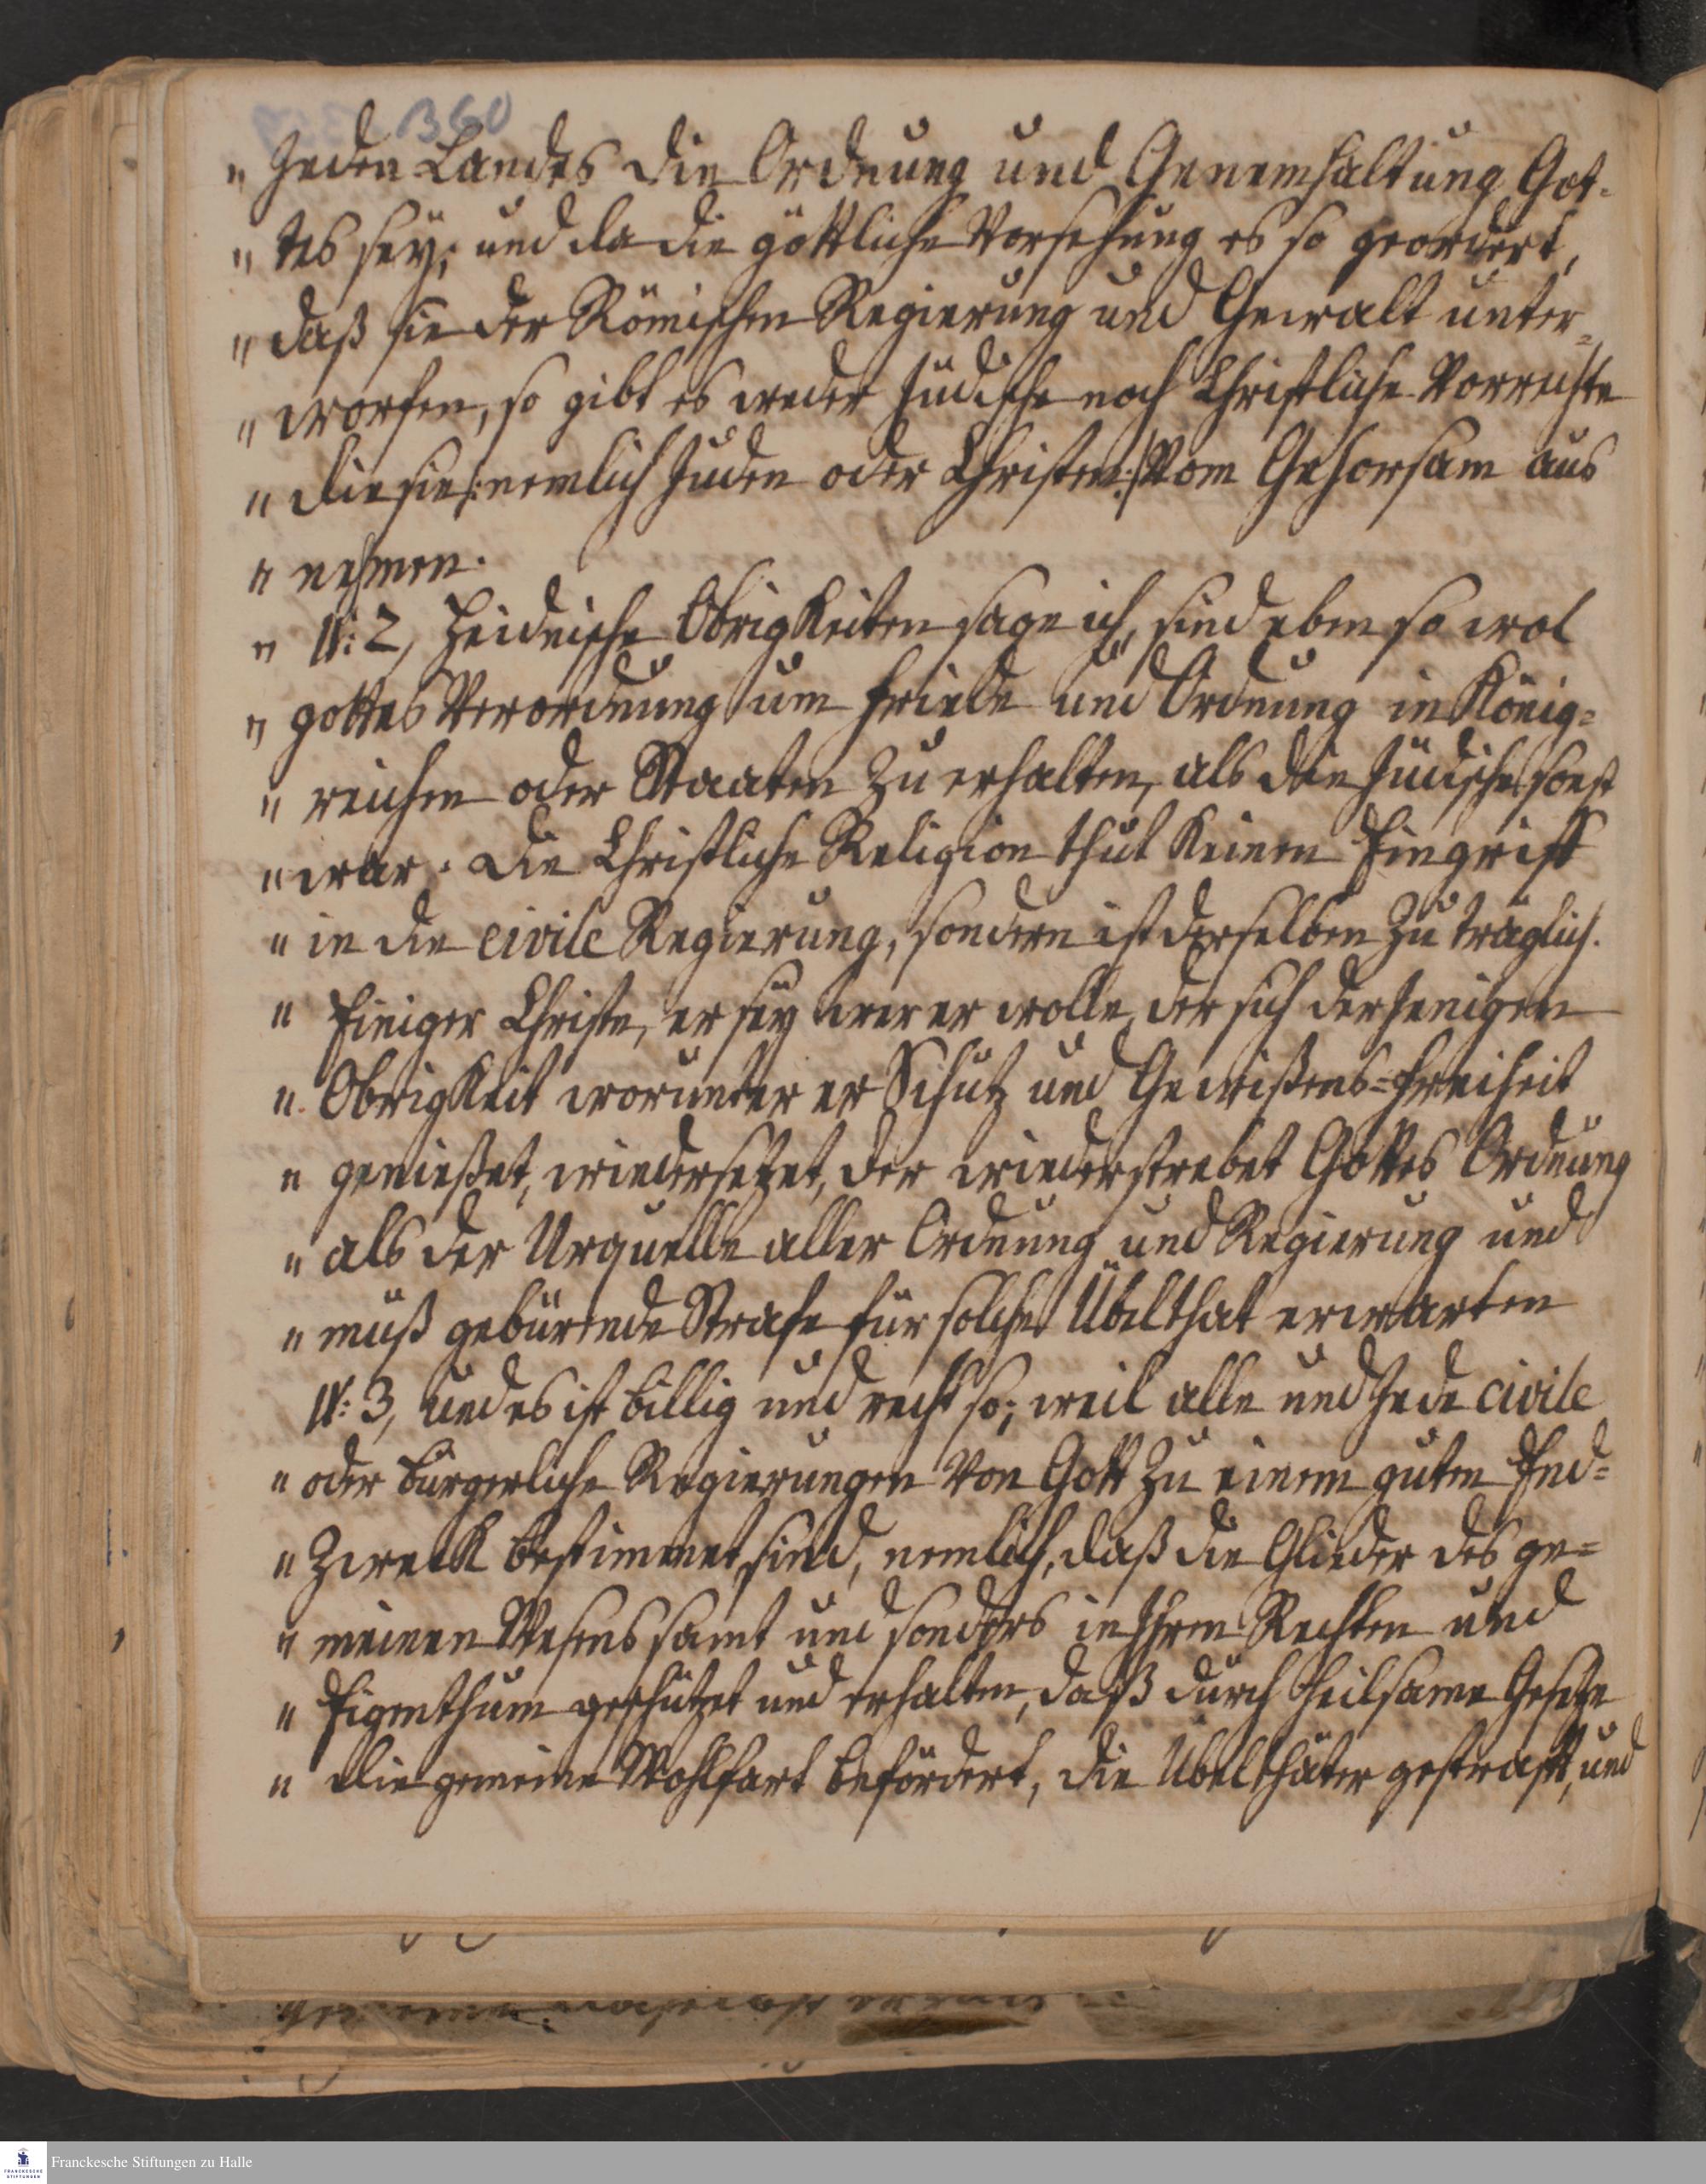 360
" Jeden Landes die Ordnung und Genemhaltung Got-
" tes seÿ; und da die göttliche Vorsehung es so geordert,
" daß sie der Römischen Regierung und Gewalt unter-
" worfen, so gibt es weder Jüdische noch Christliche Vorrechte
" die sie /: nemlich Juden oder Christen :/ Vom Gehorsam aus
" nehmen.
" N: 2, Heidnische Obrigkeiten sage ich, sind eben so wol
" gottes Verordnung um Friede und Ordnung in König=
" reichen oder Staaten zu erhalten, als die Jüdische sonst
" war. Die Christliche Religion thut keinen Eingriff
" in die civile Regierung, sondern ist derselben zu träglich.
" Einiger Christe, er seÿ wer er wolle, der sich derjenigen
" Obrigkeit worunter er Schutz und Gewißens=Freiheit
" genießet, wiedersetzet, der wiederstrebet Gottes Ordnung
" als der Urquelle aller Ordnung und Regierung und
" muß gebürende Strafe für solche Übelthat erwarten
N: 3, und es ist billig und recht so; weil alle und Jede civile
" oder bürgerliche Regierungen Von Gott zu einem guten End=
" Zweck bestimmet sind, nemlich, daß die Glieder des ge=
" meinen Wesens samt und sonders in Ihren Rechten und
" Eigenthum geschützet und erhalten, daß durch heilsame Gesetze
" die gemeine Wohlfart befördert, die Übelthäter gestraft, und
Franckesche Stiftungen zu Halle